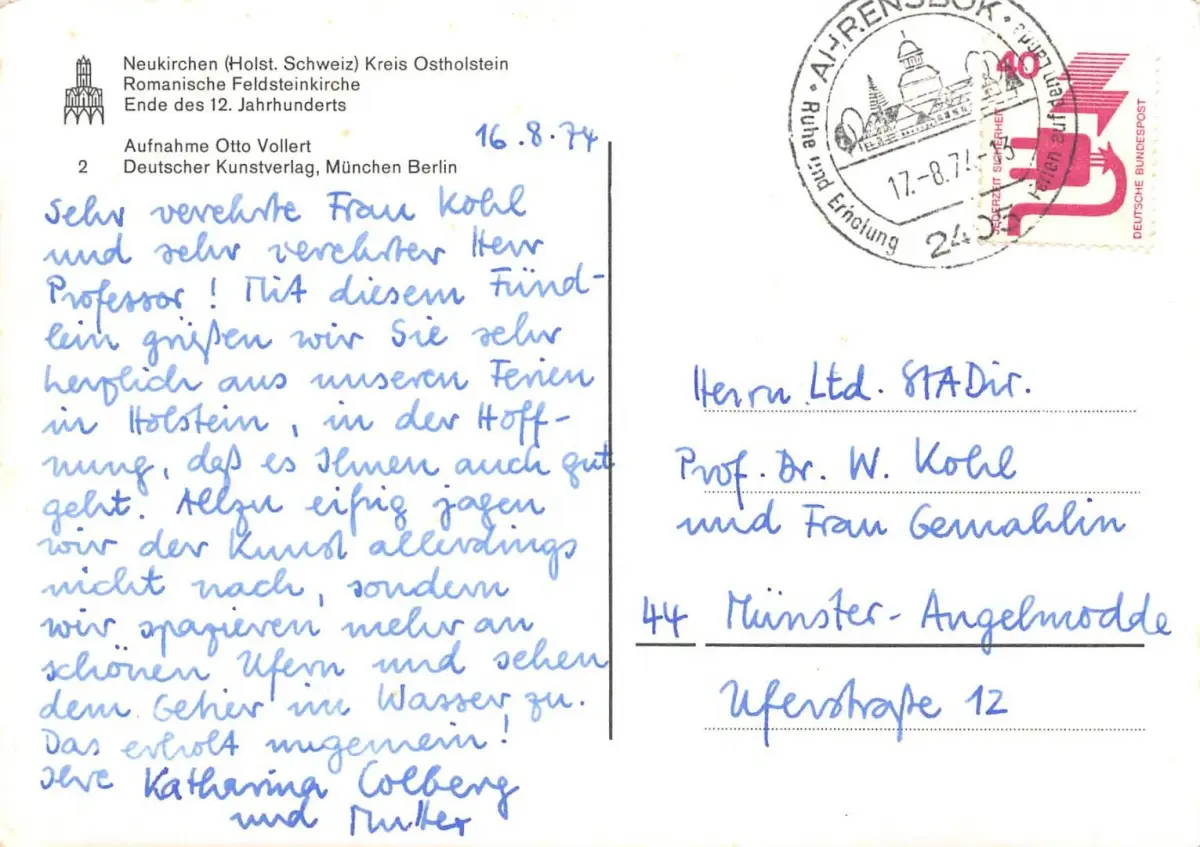 Neukirchen (Holst. Schweiz) Kreis Ostholstein
Romanische Feldsteinkirche
Ende des 12. Jahrhunderts
Aufnahme Otto Vollert
2 Deutscher Kunstverlag, München Berlin
16.8.74
Sehr verehrte Frau Kohl
und sehr verehrter Herr
Professor! Mit diesem Fünd-
lein grüßen wir Sie sehr
herzlich aus unseren Ferien
in Holstein, in der Hoff-
nung, daß es Ihnen auch gut
geht. Allzu eifrig jagen
wir der Kunst allerdings
nicht nach, sondern
wir spazieren mehr an
schönen Ufern und sehen
dem Getier im Wasser zu.
Das erholt ungemein!
Ihre Katharina Colberg
und Mutter
AHRENSBÖK
Ruhe und Erholung
Ferien auf dem Lande
17.-8.74-15
2405
40
JEDERZEIT SICHERHEIT
DEUTSCHE BUNDESPOST
Herrn Ltd. StADir.
Prof. Dr. W. Kohl
und Frau Gemahlin
44 Münster-Angelmodde
Uferstraße 12